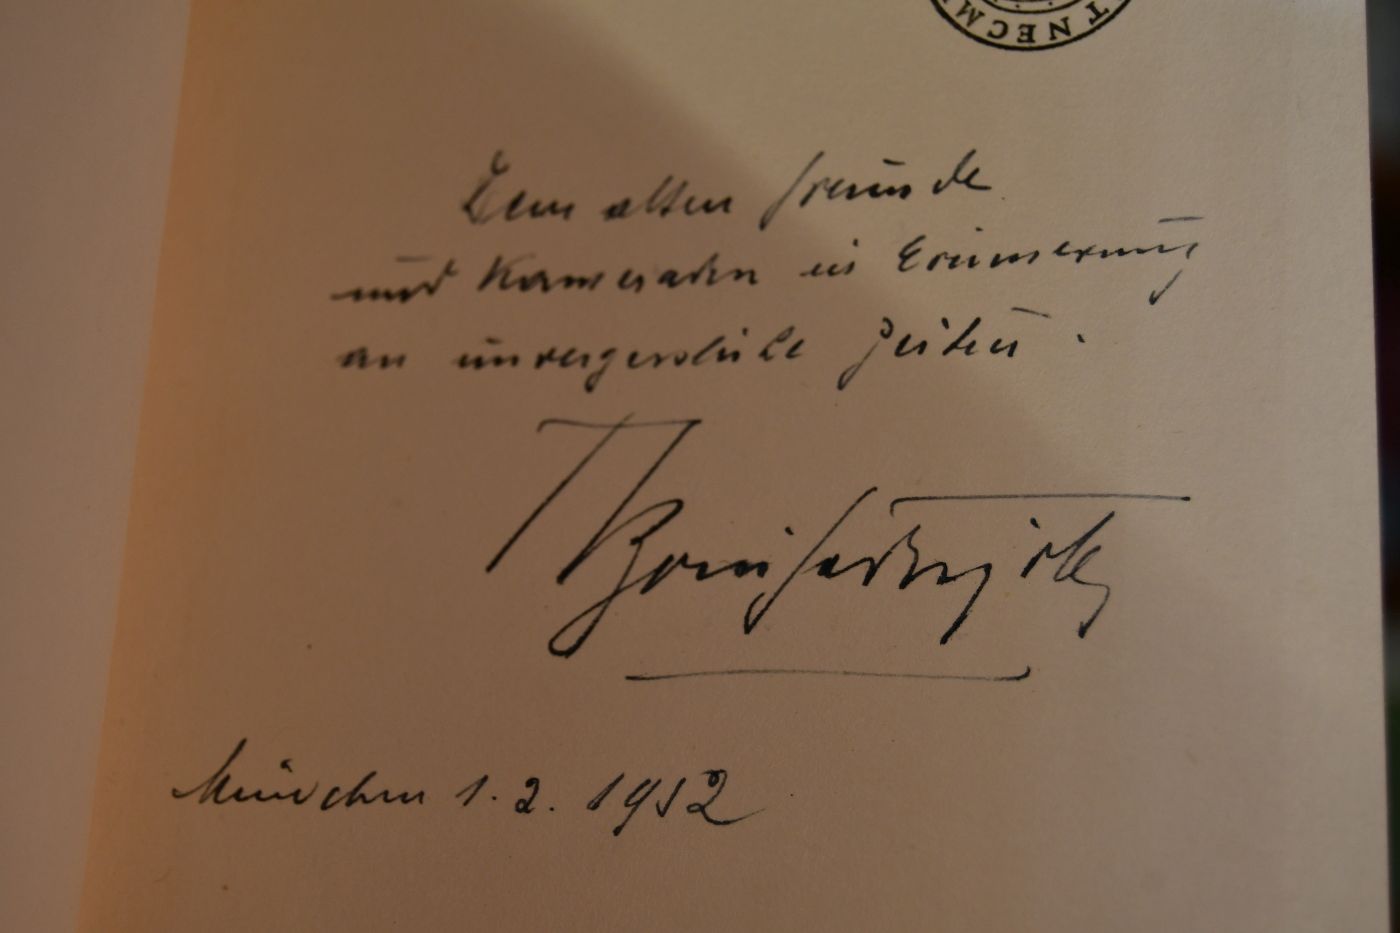 TNECM
Dem alten Freunde
und Kameraden in Erinnerung
an unvergessliche Zeiten.
München 1.2.1952